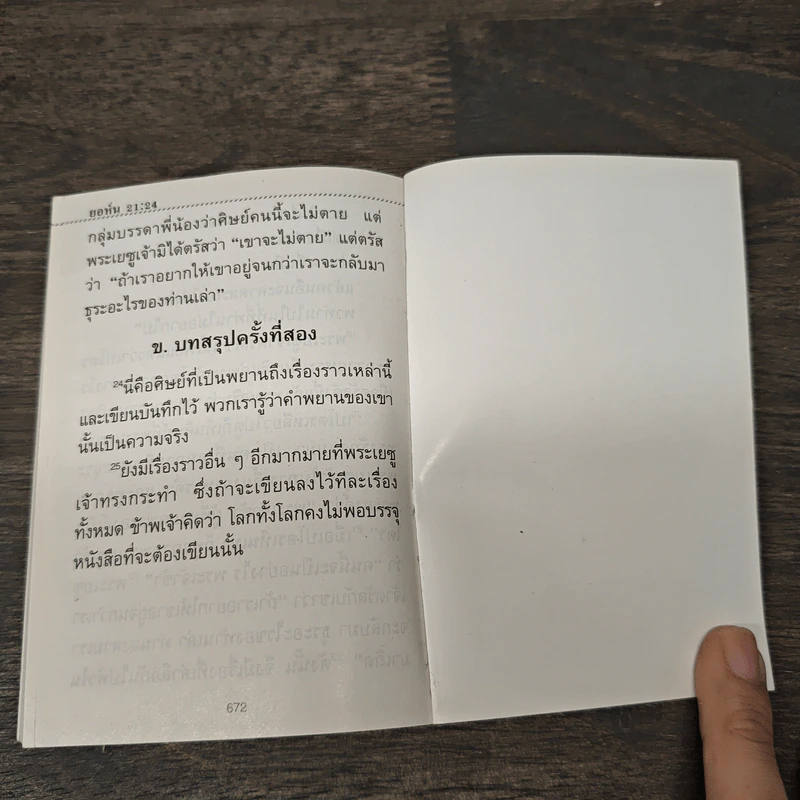 ยอห์น 21:24
กลุ่มบรรดาพี่น้องว่าศิษย์คนนี้จะไม่ตาย แต่
พระเยซูเจ้ามิได้ตรัสว่า “เขาจะไม่ตาย” แต่ตรัส
ว่า “ถ้าเราอยากให้เขาอยู่จนกว่าเราจะกลับมา
ธุระอะไรของท่านเล่า”
ข. บทสรุปครั้งที่สอง
24นี่คือศิษย์ที่เป็นพยานถึงเรื่องราวเหล่านี้
และเขียนบันทึกไว้ พวกเรารู้ว่าคำพยานของเขา
นั้นเป็นความจริง
25ยังมีเรื่องราวอื่น ๆ อีกมากมายที่พระเยซู
เจ้าทรงกระทำ ซึ่งถ้าจะเขียนลงไว้ทีละเรื่อง
ทั้งหมด ข้าพเจ้าคิดว่า โลกทั้งโลกคงไม่พอบรรจุ
หนังสือที่จะต้องเขียนนั้น
672